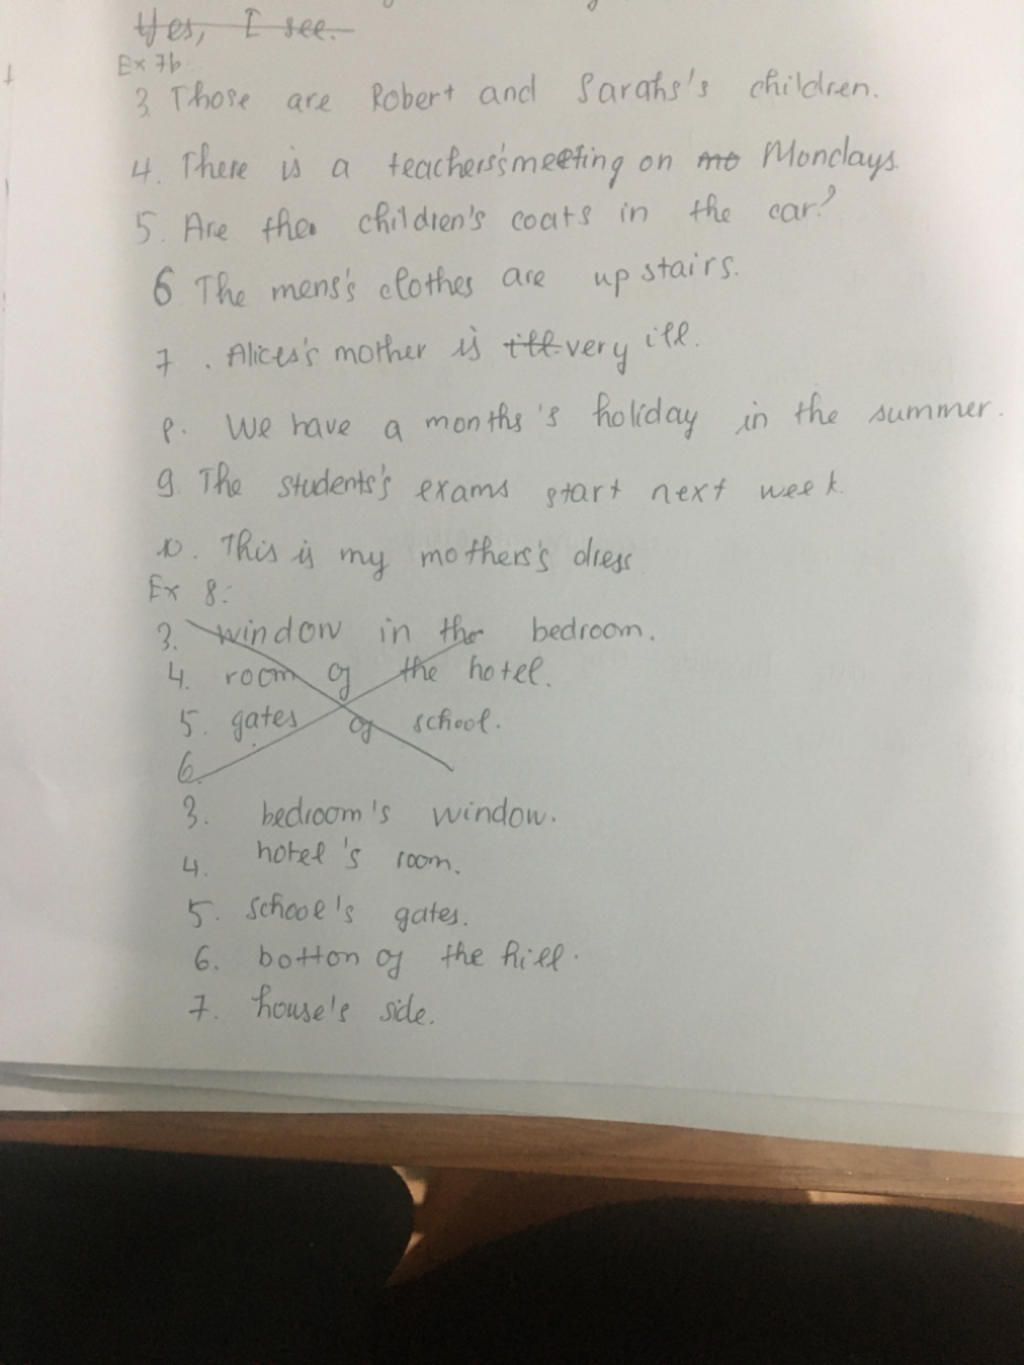 Yes, I see.
Ex 7b
3 Those are Robert and Sarahs's children.
4. There is a teachers's meeting on mo Mondays.
5. Are the children's coats in the car?
6 The mens's clothes are up stairs.
7. Alices's mother is ill very ill.
8. We have a months's holiday in the summer.
9. The students's exams start next week.
10. This is my mothers's dress
Ex 8:
3. window in the bedroom.
4. room of the hotel.
5. gates of school.
6.
3. bedroom's window.
4. hotel's room.
5. school's gates.
6. botton of the hill.
7. house's side.